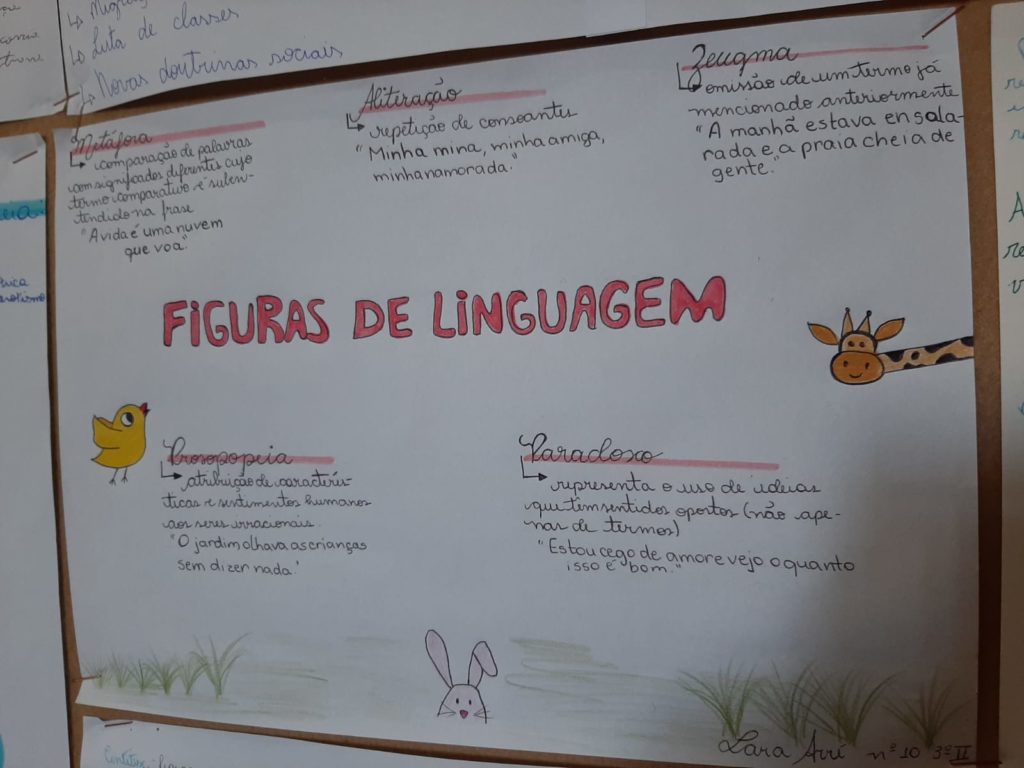 ↳ Luta de classes
↳ Novas doutrinas sociais
Metáfora
↳ comparação de palavras
com significados diferentes cujo
termo comparativo é suben-
tendido na frase
"A vida é uma nuvem
que voa."
Alitiração
↳ repetição de consoantes
"Minha mina, minha amiga,
minha namorada."
Zeugma
↳ omissão de um termo já
mencionado anteriormente
"A manhã estava ensola-
rada e a praia cheia de
gente."
FIGURAS DE LINGUAGEM
Prosopopeia
↳ atribuição de caracterís-
ticas e sentimentos humanos
aos seres irracionais.
"O jardim olhava as crianças
sem dizer nada."
Paradoxo
↳ representa o uso de ideias
que têm sentidos opostos (não ape-
nas de termos)
"Estou cego de amor e vejo o quanto
isso é bom."
Lara nº 10 3º II